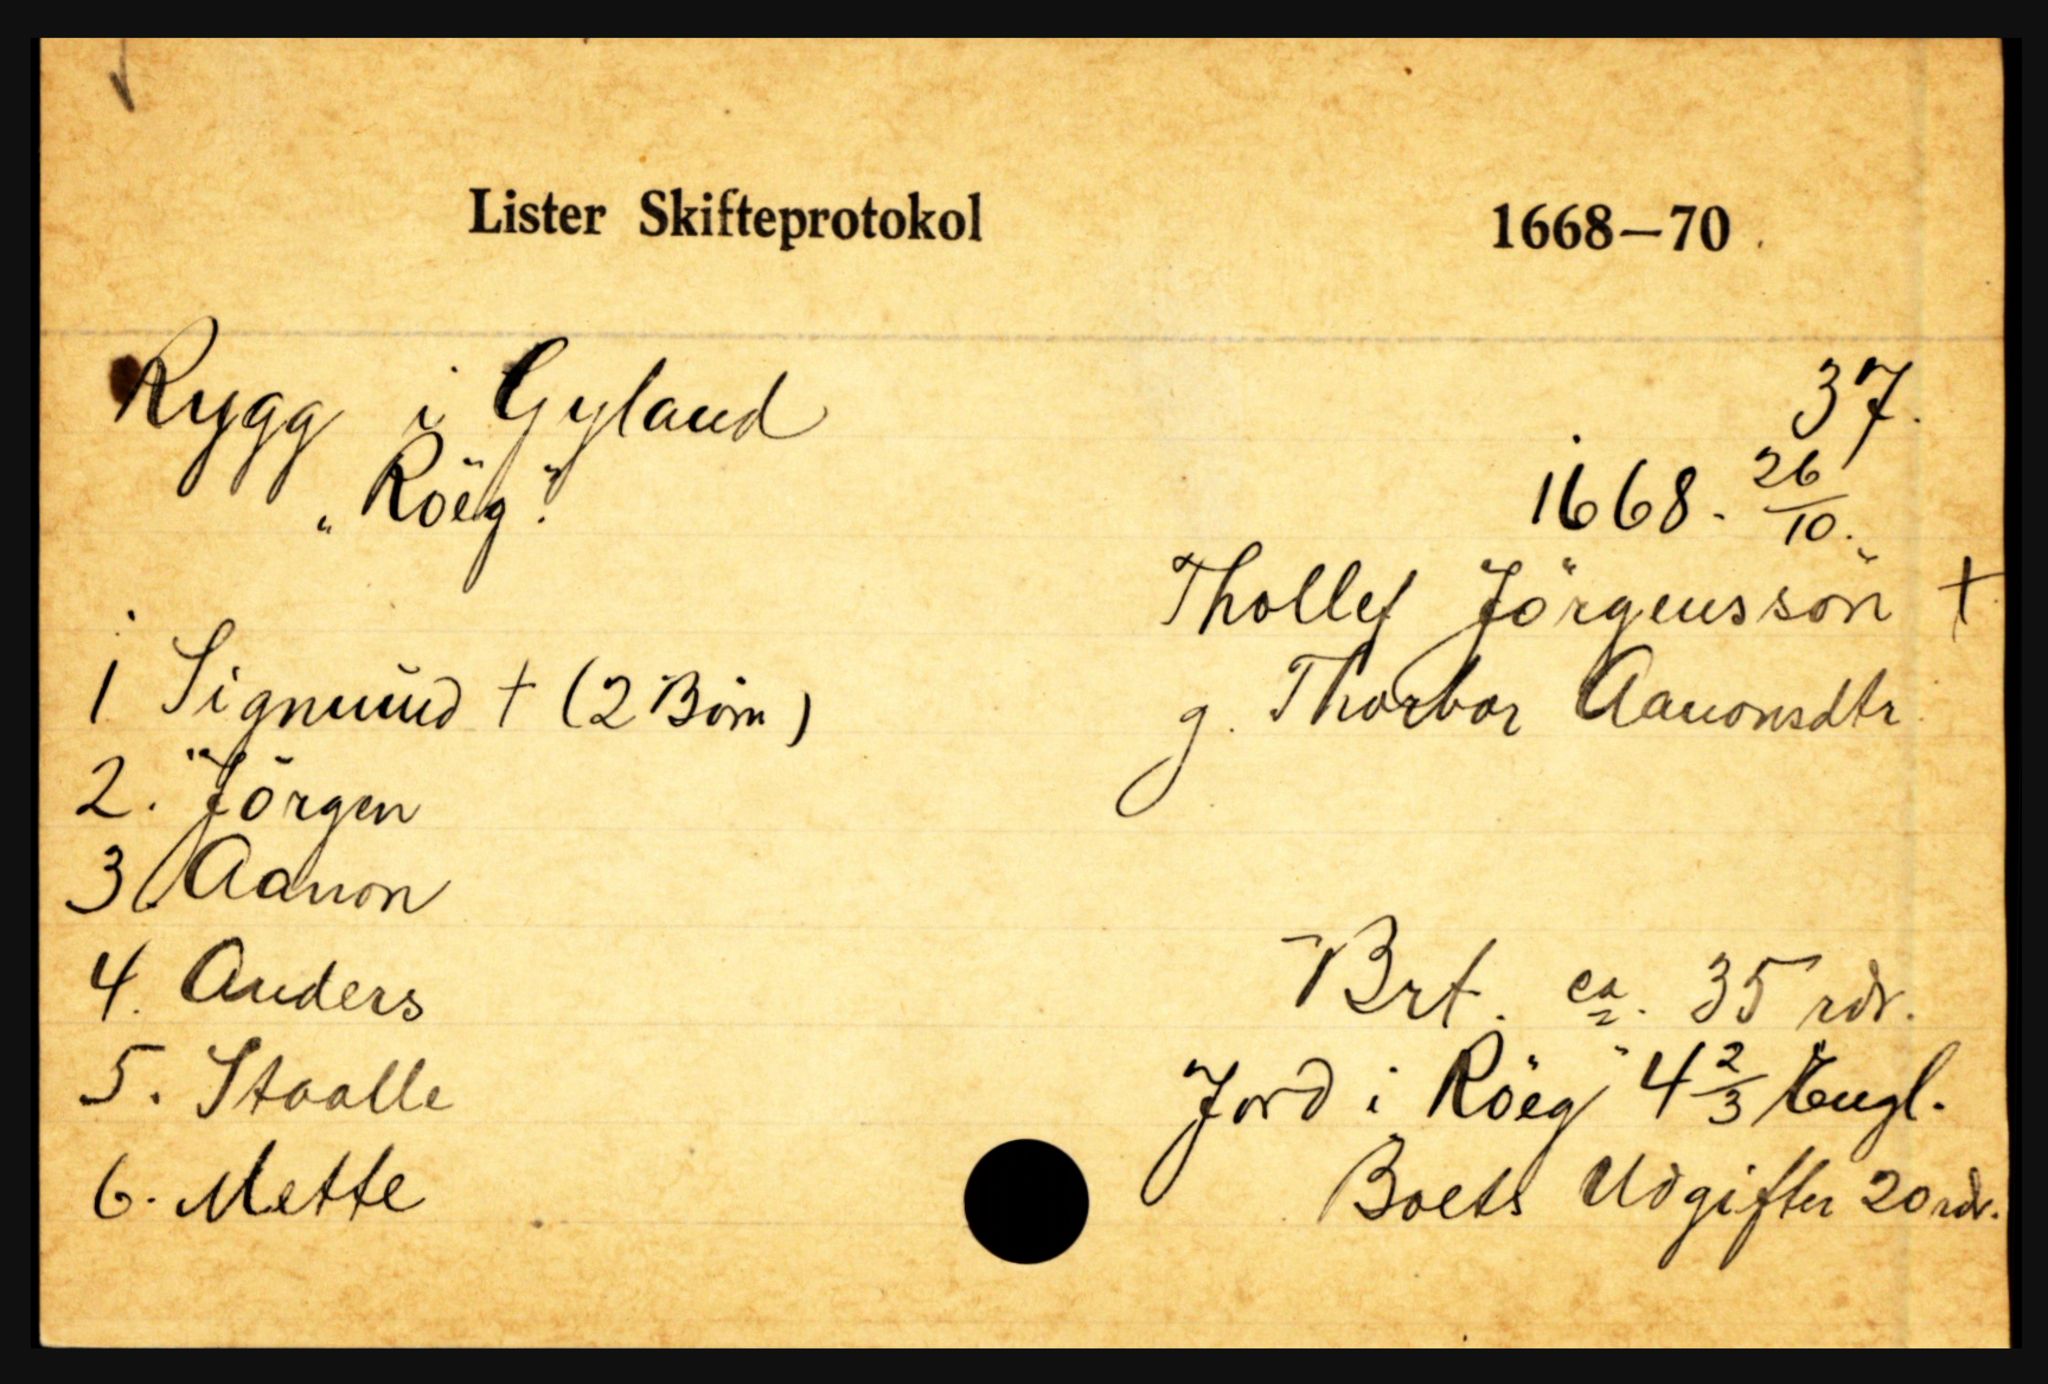 Lister Skifteprotokol 1668—70
Rygg i Gyland
37.
„Röeg".
1668. 26/10.
Thollef Jörgenssön †
1 Sigmund † (2 Börn)
g. Thorbor Aanonsdtr.
2. Jörgen
3. Aanon
4. Anders
Brt. ca. 35 rdr.
5. Staalle
Jord i "Röeg" 4 2/3 Engl.
6. Mette
Boets Udgifter 20 rdr.